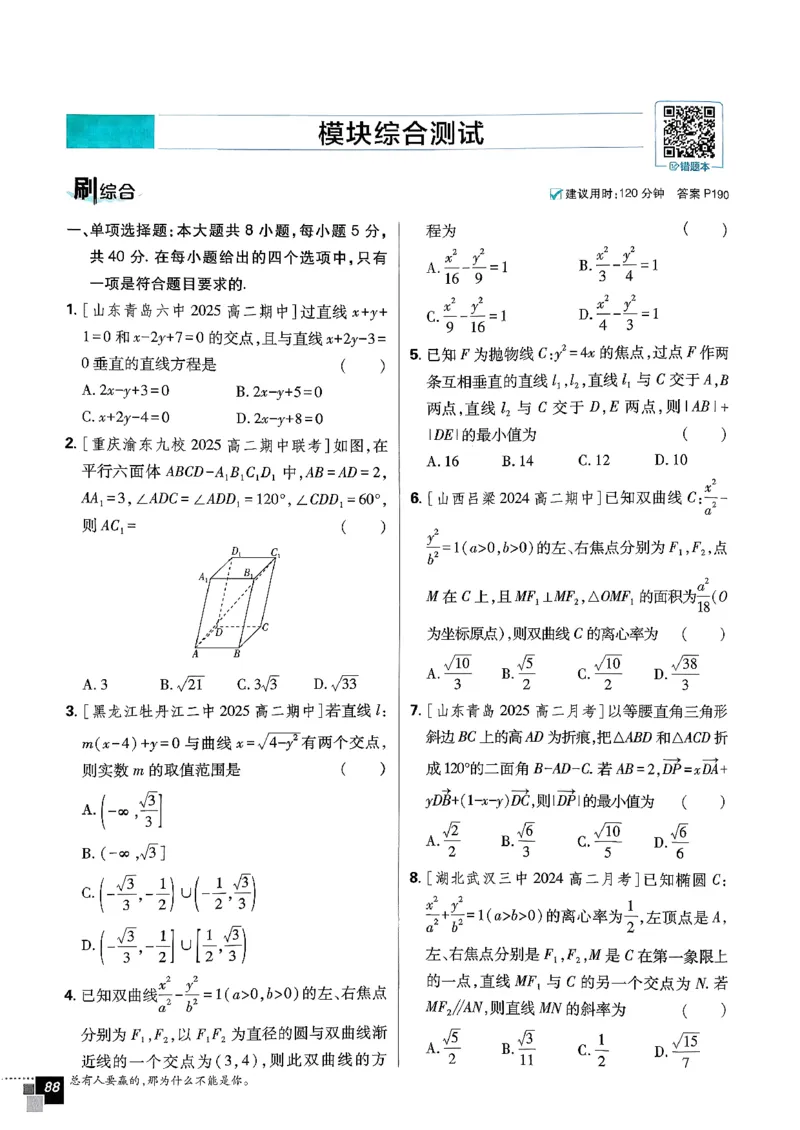 模块综合测试
错题本
刷综合
建议用时:120分钟 答案P190
一、单项选择题:本大题共8小题,每小题5分,
共40分.在每小题给出的四个选项中,只有
一项是符合题目要求的.
1.[山东青岛六中2025高二期中]过直线x+y+
1=0和x-2y+7=0的交点,且与直线x+2y-3=
0垂直的直线方程是 ( )
A.2x-y+3=0 B.2x-y+5=0
C.x+2y-4=0 D.2x-y+8=0
2.[重庆渝东九校2025高二期中联考]如图,在
平行六面体ABCD-A₁B₁C₁D₁中,AB=AD=2,
AA₁=3,∠ADC=∠ADD₁=120°,∠CDD₁=60°,
则AC₁= ( )
D₁ C₁
A₁ B₁
D C
A B
A.3 B.√21 C.3√3 D.√33
3.[黑龙江牡丹江二中2025高二期中]若直线l:
m(x-4)+y=0与曲线x=√(4-y²)有两个交点,
则实数m的取值范围是 ( )
A.(-∞,√3/3]
B.(-∞,√3]
C.(-√3/3,-1/2)∪(-1/2,√3/3)
D.(-√3/3,-1/2]∪[1/2,√3/3)
4.已知双曲线x²/a²-y²/b²=1(a>0,b>0)的左、右焦点
分别为F₁,F₂,以F₁F₂为直径的圆与双曲线渐
近线的一个交点为(3,4),则此双曲线的方
程为 ( )
A.x²/16-y²/9=1 B.x²/3-y²/4=1
C.x²/9-y²/16=1 D.x²/4-y²/3=1
5.已知F为抛物线C:y²=4x的焦点,过点F作两
条互相垂直的直线l₁,l₂,直线l₁与C交于A,B
两点,直线l₂与C交于D,E两点,则|AB|+
|DE|的最小值为 ( )
A.16 B.14 C.12 D.10
6.[山西吕梁2024高二期中]已知双曲线C:x²/a²-
y²/b²=1(a>0,b>0)的左、右焦点分别为F₁,F₂,点
M在C上,且MF₁⊥MF₂,△OMF₁的面积为a²/18(O
为坐标原点),则双曲线C的离心率为 ( )
A.√10/3 B.√5/2 C.√10/2 D.√38/3
7.[山东青岛2025高二月考]以等腰直角三角形
斜边BC上的高AD为折痕,把△ABD和△ACD折
成120°的二面角B-AD-C.若AB=2,DP→=xDA→+
yDB→+(1-x-y)DC→,则|DP→|的最小值为 ( )
A.√2/2 B.√6/3 C.√10/5 D.√6/6
8.[湖北武汉三中2024高二月考]已知椭圆C:
x²/a²+y²/b²=1(a>b>0)的离心率为1/2,左顶点是A,
左、右焦点分别是F₁,F₂,M是C在第一象限上
的一点,直线MF₁与C的另一个交点为N.若
MF₂//AN,则直线MN的斜率为 ( )
A.√5/2 B.√3/11 C.1/2 D.√15/7
88 总有人要赢的,那为什么不能是你。